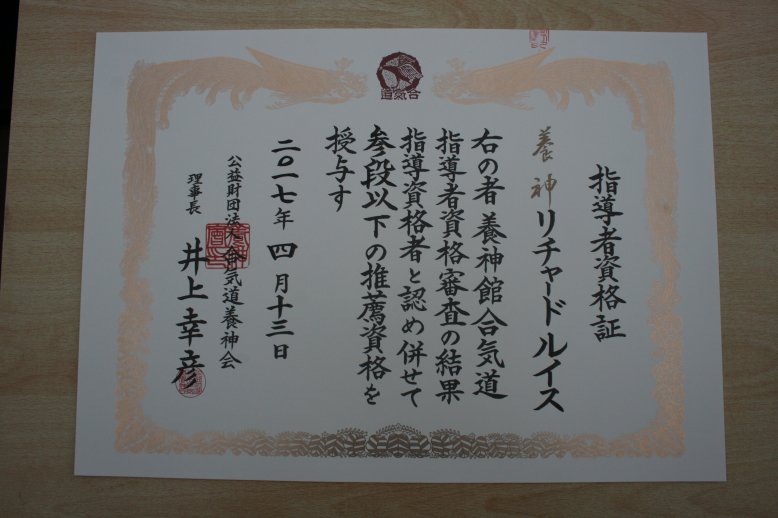 指導者資格証
養神リチャードルイス
右の者養神館合気道
指導者資格審査の結果
指導資格者と認め併せて
参段以下の推薦資格を
授与す
二〇一七年四月十三日
公益財団法人合気道養神会
理事長 井上幸彦
合氣道